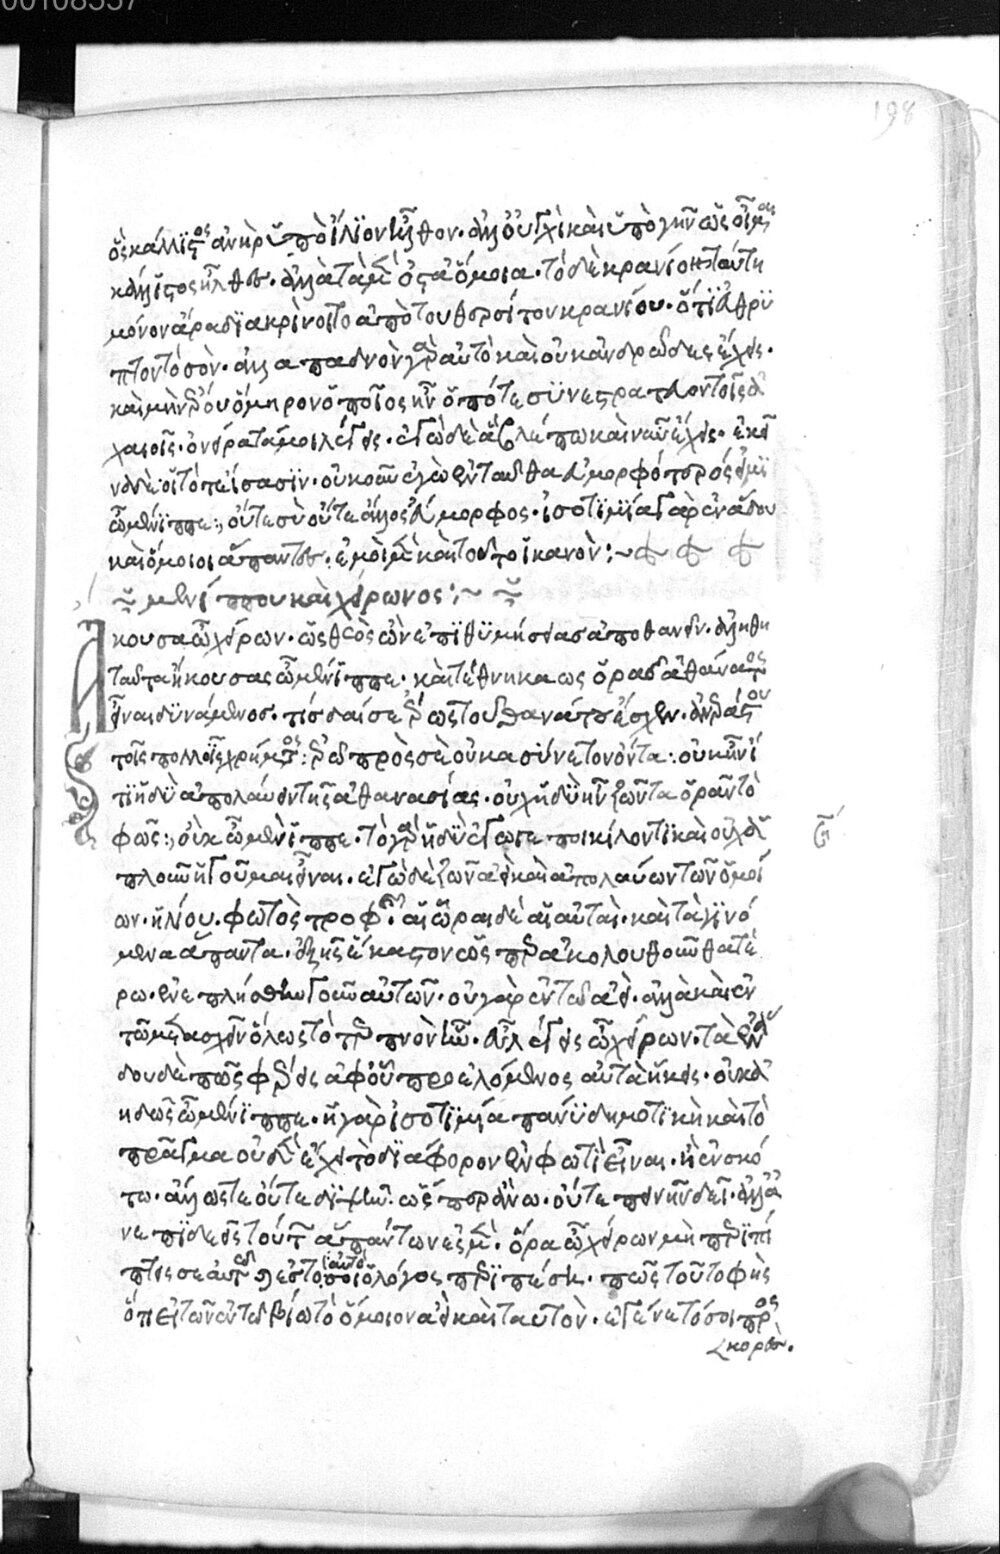 00108557
198
ὃς κάλλιστος ἀνὴρ ὑπὸ ἴλιον ἦλθον· ἀλλ' οὐχὶ καὶ ὑπὸ γῆν ὡς οἶμαι
κάλλιστος ἦλθες· ἀλλὰ τὰ μὲν ὀστᾶ ὅμοια· τὸ δὲ κρανίον ταύτη
μόνον ἄρα διακρίνοιτο ἀπὸ τοῦ θερσίτου κρανίου· ὅτι εὔθρυ
πτον τὸ σὸν· ἀλλαπαδνὸν γὰρ αὐτὸ καὶ οὐκ ἀνδρῶδες ἔχεις·
καὶ μὴν ἐροῦ ὅμηρον ὁποῖος ἦν ὁπότε συνεστράτευον τοῖς ἀ
χαιοῖς· ὀνείρατά μοι λέγεις· ἐγὼ δὲ ἃ βλέπω καὶ νῦν ἔχεις· ἐκεῖ
να δὲ οἱ τότε ἴσασιν· οὐκοῦν ἐγὼ ἐνταῦθα εὐμορφότερός εἰμι
ὦ μένιππε:, οὔτε σὺ οὔτε ἄλλος εὔμορφος· ἰσοτιμία γὰρ ἐν ἅδου
καὶ ὅμοιοι ἅπαντες· ἐμοὶ μὲν καὶ τοῦτο ἱκανὸν:~
μενίππου καὶ χείρωνος:~
Ἤκουσα ὦ χείρων· ὡς θεὸς ὢν ἐπιθυμήσειας ἀποθανεῖν· ἀληθῆ
ταῦτα ἤκουσας ὦ μένιππε· καὶ τέθνηκα ὡς ὁρᾶς ἀθάνατος
εἶναι δυνάμενος· τίς δαί σε ἔρως τοῦ θανάτου ἔσχεν· ἀνεράστου
τοῖς πολλοῖς χρήματος: ἐρῶ πρὸς σὲ οὐκ ἀσύνετον ὄντα:. οὐκ ἦν ἔ
τι ἡδὺ ἀπολαύειν τῆς ἀθανασίας· οὐχ ἡδὺ ἦν ζῶντα ὁρᾶν τὸ
φῶς:, οὐκ ὦ μένιππε· τὸ γὰρ ἡδὺ ἔγωγε ποικίλον τι καὶ οὐχ ἁ
πλοῦν ἡγοῦμαι εἶναι· ἐγὼ δὲ ζῶν ἀεὶ καὶ ἀπολαύων τῶν ὁμοί
ων· ἡλίου· φωτὸς τροφῆς· αἱ ὧραι δὲ αἱ αὐταὶ· καὶ τὰ γινό
μενα ἅπαντα· ἑξῆς ἕκαστον ὡς παρακολουθοῦν θατέ
ρω· ἐνεπλήσθην γοῦν αὐτῶν· οὐ γὰρ ἐν τῶ αὐτῶ ἀεὶ· ἀλλὰ καὶ ἐν
τῶ μετασχεῖν ὅλως τὸ τερπνὸν ἦν· εὖ λέγεις ὦ χείρων· τὰ ἐν ἅ
δου δὲ πῶς φέρεις ἀφ' οὗ προελόμενος αὐτὰ ἥκεις· οὐκ ἀ
ηδῶς ὦ μένιππε· ἡ γὰρ ἰσοτιμία πάνυ δημοτικὴ καὶ τὸ
πρᾶγμα οὐδὲν ἔχει τὸ διάφορον ἐν φωτὶ εἶναι· ἢ ἐν σκό
τω· ἄλλως τε οὔτε διψῆν· ὥσπερ ἄνω· οὔτε πεινῆν δεῖ· ἀλλ' ἀ
νεπιδεεῖς τούτων ἁπάντων ἐσμέν· ὅρα ὦ χείρων μὴ περιπί
πτεις σεαυτῶ καὶ ἐς τὸ αὐτό σοι ὁ λόγος περιπέση· πῶς τοῦτο φὴς
ὅτι εἰ τῶν ἐν τῶ βίω τὸ ὅμοιον ἀεὶ καὶ ταυτὸν· ἐγένετό σοι προς
κορὲς·